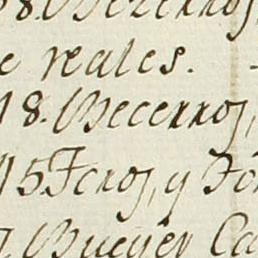 8. Becerros,
e reales.
18. Becerros,
15 Toros, y To
Bueyes Ca